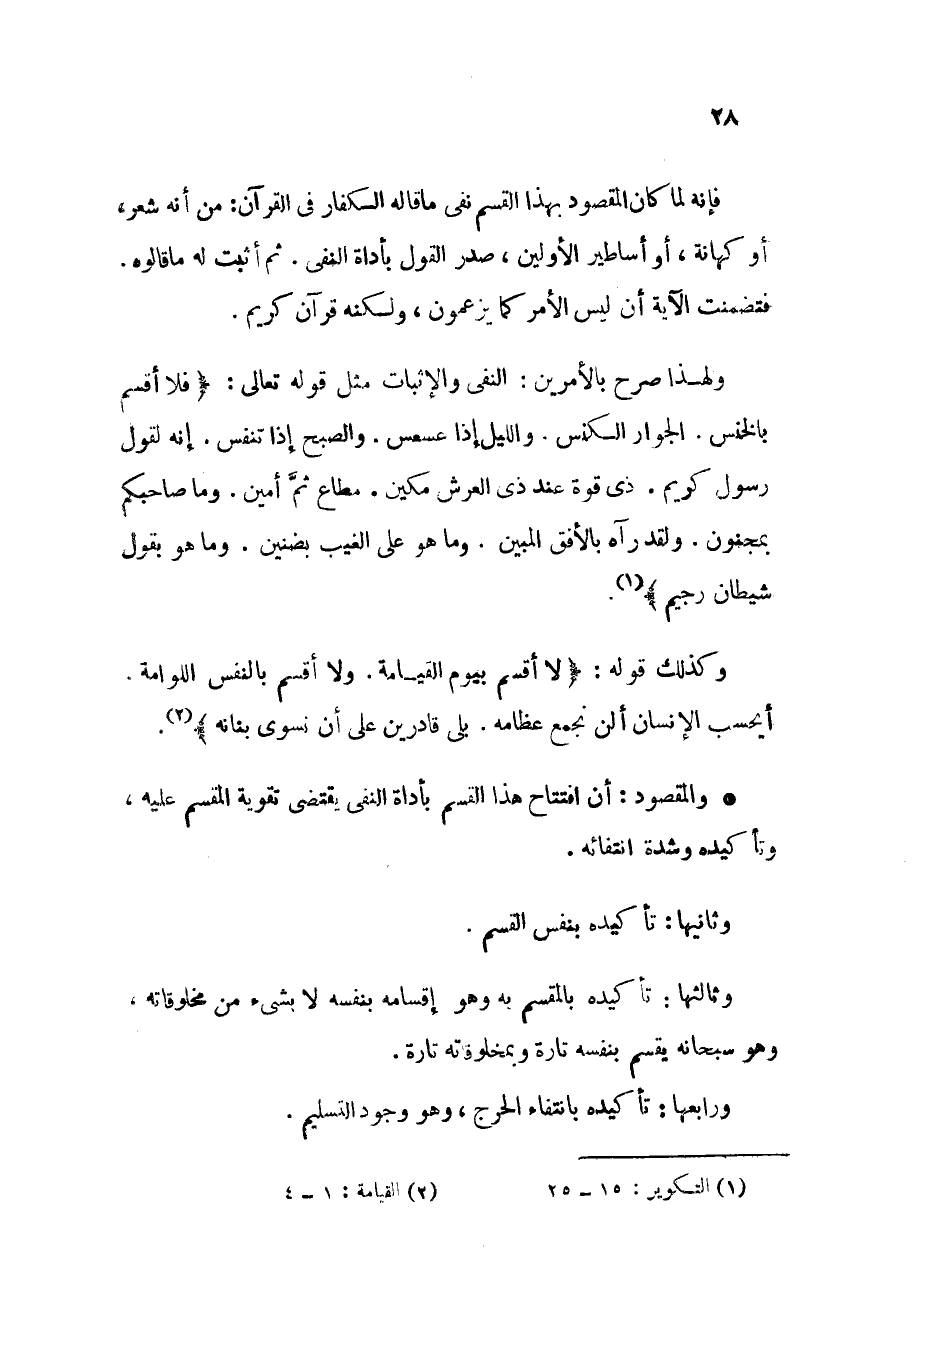 ٢٨
فإنه لما كان المقصود بهذا القسم نفى ماقاله الكفار فى القرآن: من أنه شعر،
أو كهانة ، أو أساطير الأولين ، صدر القول بأداة النفى . ثم أثبت له ماقالوه .
فتضمنت الآية أن ليس الأمر كما يزعمون ، ولكنه قرآن كريم .
ولهذا صرح بالأمرين : النفى والإثبات مثل قوله تعالى : ﴿ فلا أقسم
بالخنس . الجوار الكنس . والليل إذا عسعس . والصبح إذا تنفس . إنه لقول
رسول كريم . ذى قوة عند ذى العرش مكين . مطاع ثمَّ أمين . وما صاحبكم
بمجنون . ولقد رآه بالأفق المبين . وما هو على الغيب بضنين . وما هو بقول
شيطان رجيم ﴾(١).
وكذلك قوله : ﴿ لا أقسم بيوم القيامة . ولا أقسم بالنفس اللوامة .
أيحسب الإنسان ألن نجمع عظامه . بلى قادرين على أن نسوى بنانه ﴾(٢).
● والمقصود : أن افتتاح هذا القسم بأداة النفى يقتضى تقوية المقسم عليه ،
وتأكيده وشدة انتفائه .
وثانيها : تأكيده بنفس القسم .
وثالثها : تأكيده بالمقسم به وهو إقسامه بنفسه لا بشىء من مخلوقاته ،
وهو سبحانه يقسم بنفسه تارة وبمخلوقاته تارة .
ورابعها : تأكيده بانتفاء الحرج ، وهو وجود التسليم .
(١) التكوير : ١٥ – ٢٥ (٢) القيامة : ١ – ٤